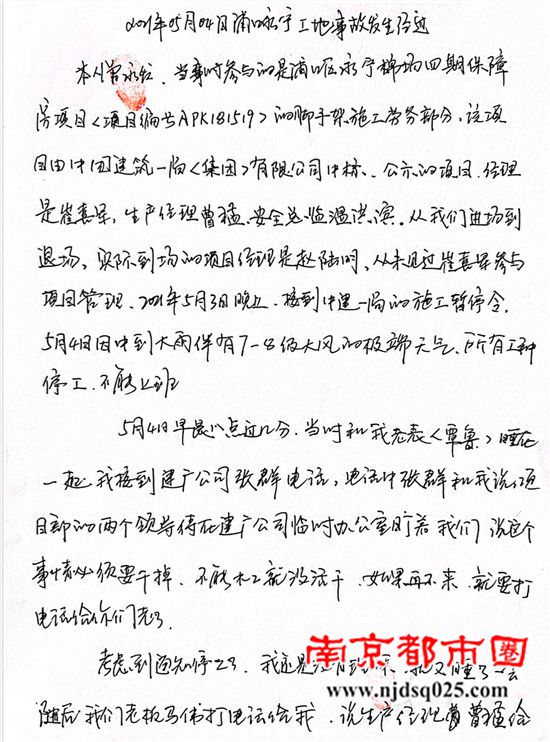 2021年05月04日浦口永宁工地事故发生经过
本人曾永钰、当事时参与的是浦口区永宁梯场四期保障
房项目<项目编号APK181519>的脚手架施工劳务部分,该项
目由中国建筑一局<集团>有限公司中标、公示的项目经理
是崔喜军,生产经理曹猛、安全总监温洪滨。从我们进场到
退场,实际到场的项目经理是赵陆明,从未见过崔喜军参与
项目管理、2021年5月3日晚上,接到中建一局的施工暂停令。
5月4日因中到大雨伴有7-8级大风的极端天气、所有工种
停工,不能上班
5月4日早晨八点近几分,当时和我老表<覃鲁>睡在
一起,我接到建广公司张群电话,电话中张群和我说项
目部的两个领导待在建广公司临时办公室盯着我们,说这个
事情必须要干掉,不能木工就没活干,如果再不来,就要打
电话给你们老
考虑到通知停工了,我还是没有理 就又睡了一会
随后我们老板马伟打电话给我,说生产经理曹猛给
南京都市圈
www.njdsq025.com